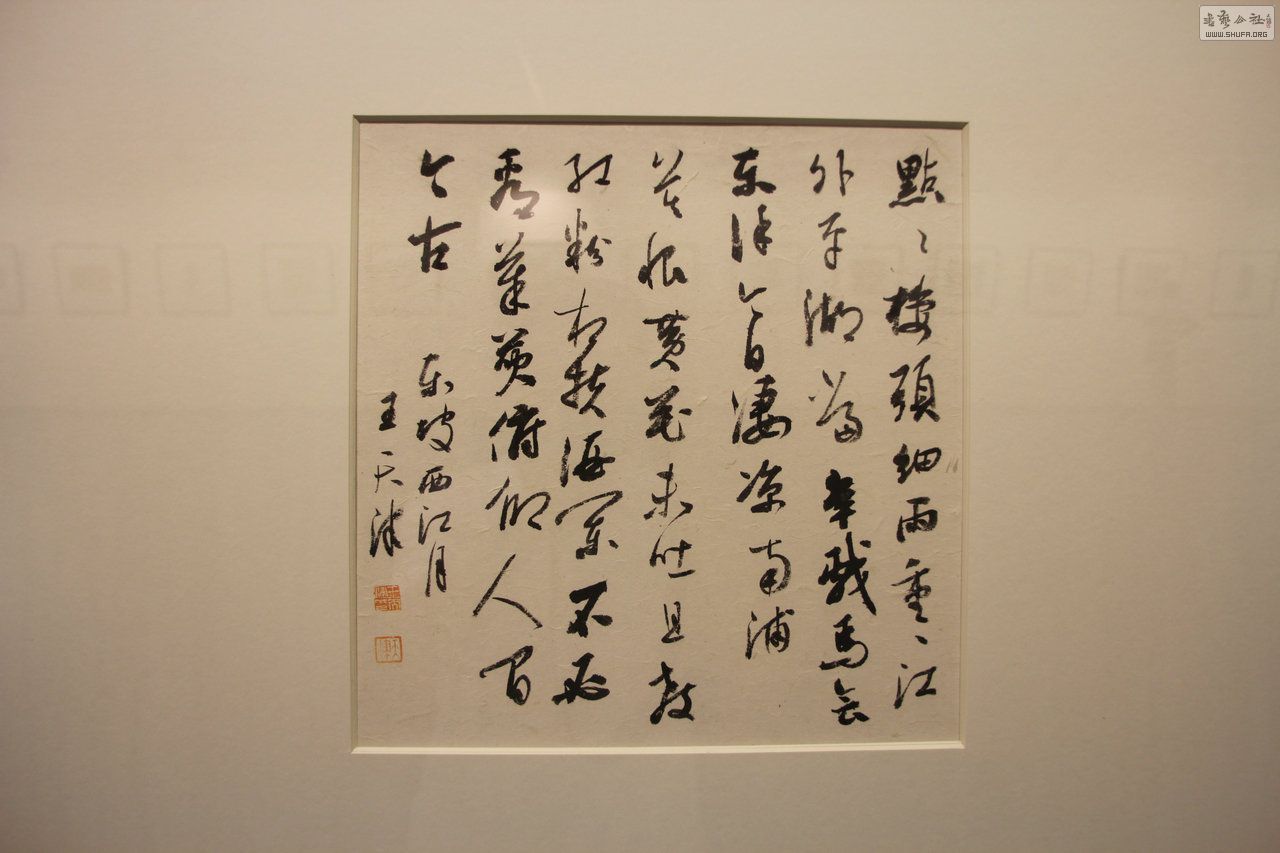 點〻樓頭細雨重〻江
外平湖當年戲馬會
東徐今日淒涼南浦
莫恨黄花未吐且教
红粉相扶酒闌不必
看茱萸俯仰人间
今古
東坡西江月
王天津
書藝公社
WWW.SHUFA.ORG